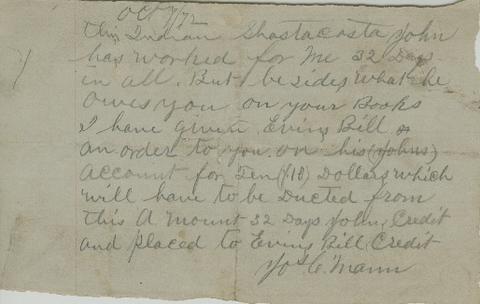 Oct 7/72
this Indian Shastacosta John
has worked for Me 32 Days
in all. But besides, what he
owes you on your Books
I have given Ewing Bill
an order to you on his (Johns)
Account for Ten ($10) Dollars which
will have to be Ducted from
this A mount 32 Days John, Credit
and placed to Ewing Bill, Credit
Mann